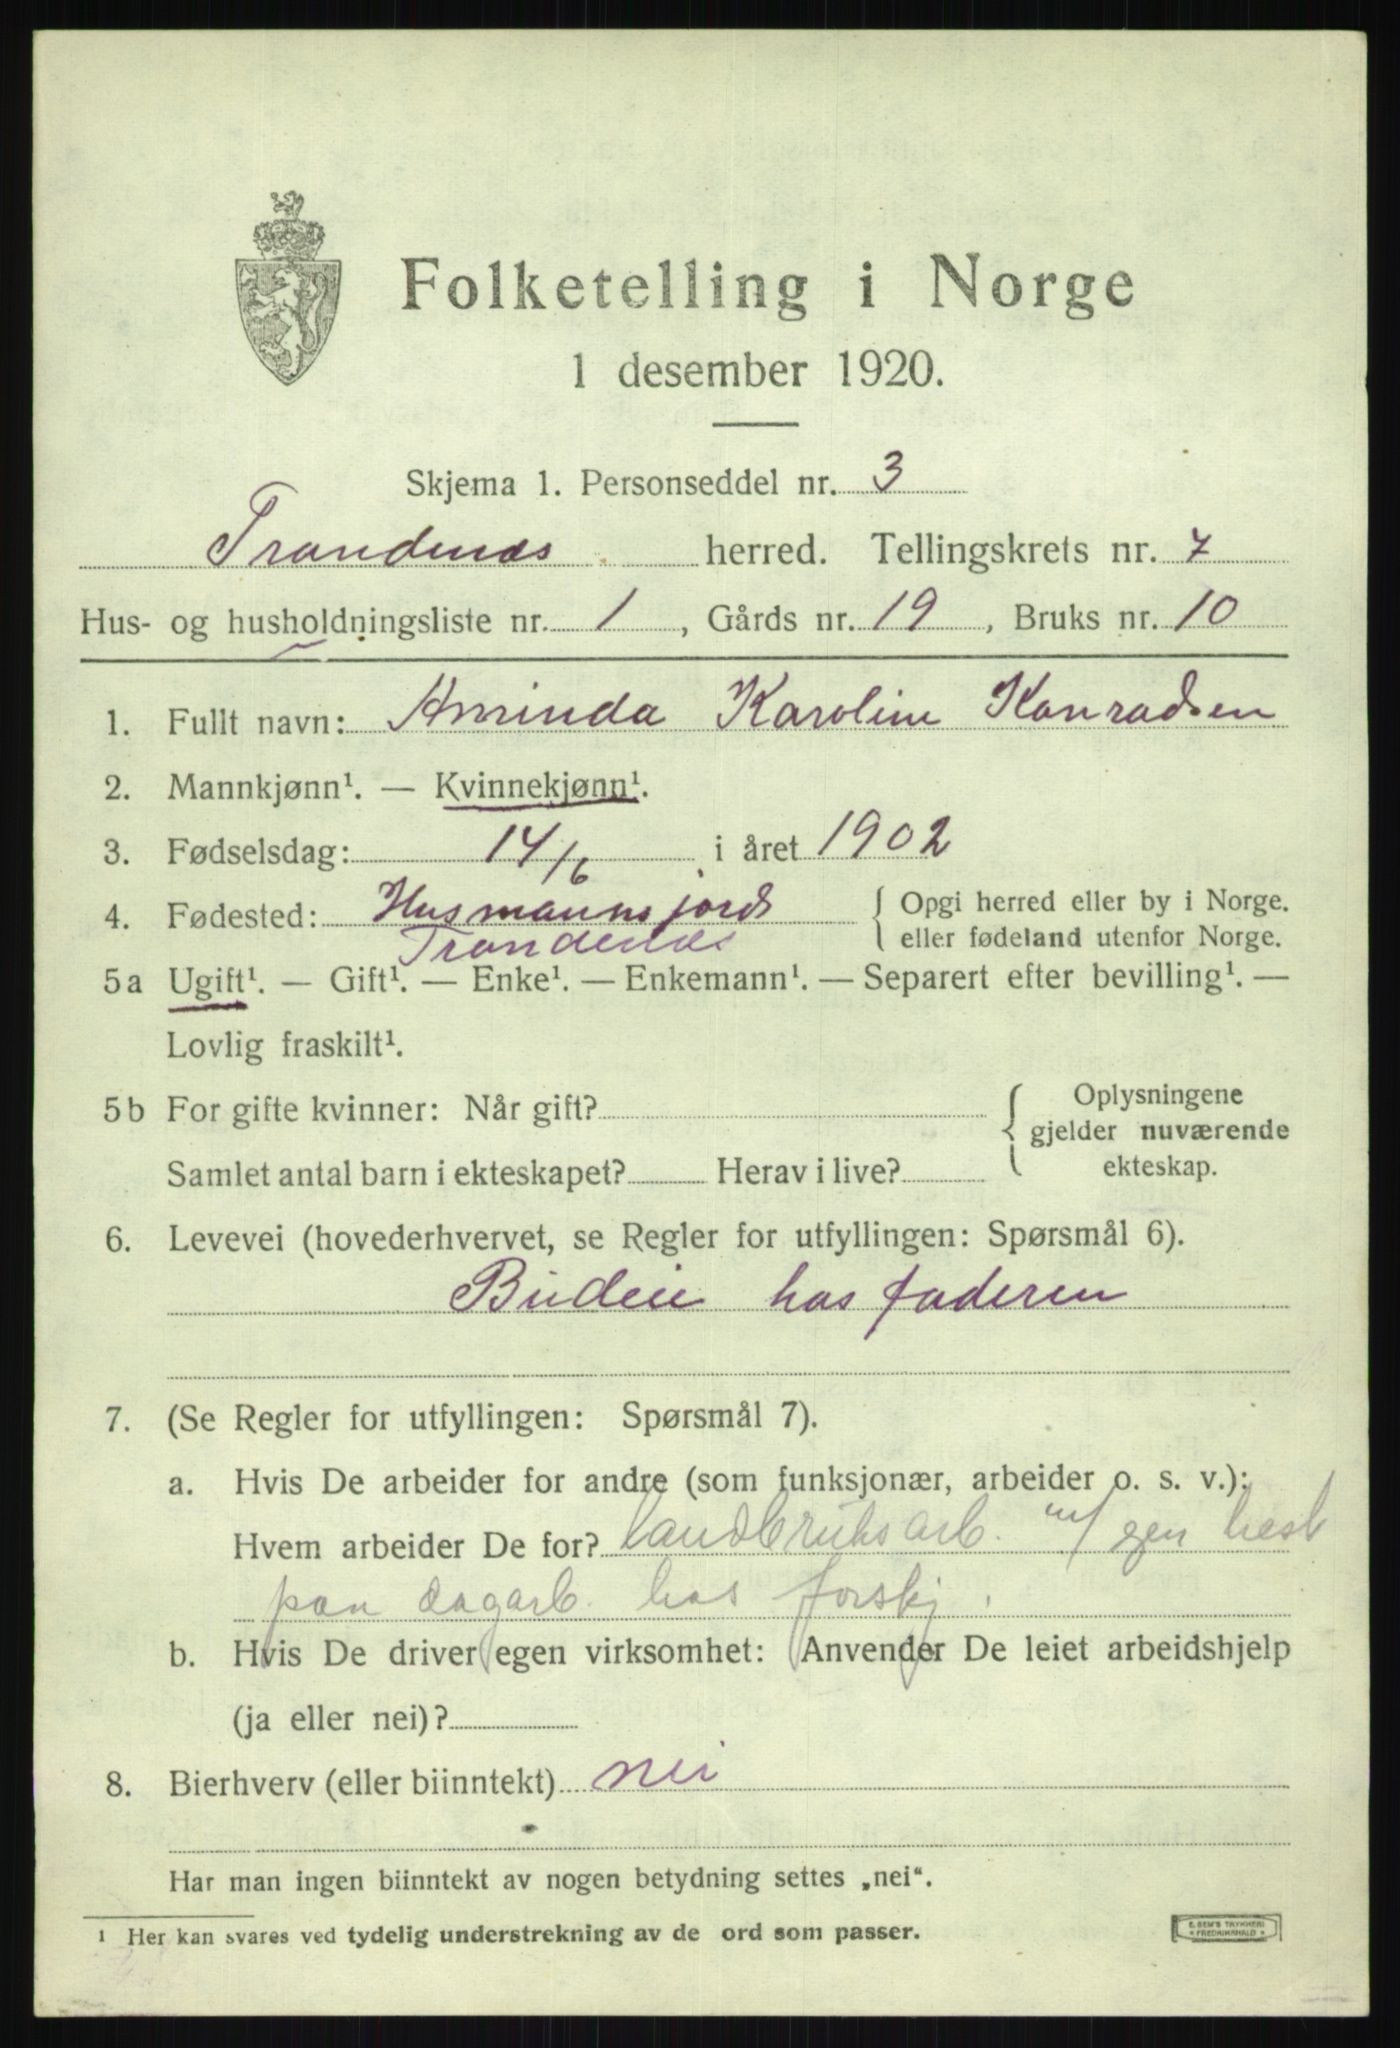 Folketelling i Norge
1 desember 1920.
Skjema 1. Personseddel nr. 3
Trondenes herred. Tellingskrets nr. 7
Hus- og husholdningsliste nr. 1, Gårds nr. 19, Bruks nr. 10
1. Fullt navn: Aminda Karoline Konradsen
2. Mannkjønn¹. — Kvinnekjønn¹.
3. Fødselsdag: 14/6 i året 1902
4. Fødested: Husmannsjord { Opgi herred eller by i Norge.
Trondenes eller fødeland utenfor Norge.
5a Ugift¹. — Gift¹. — Enke¹. — Enkemann¹. — Separert efter bevilling¹. —
Lovlig fraskilt¹.
5b For gifte kvinner: Når gift? { Oplysningene
gjelder nuværende
Samlet antal barn i ekteskapet? Herav i live? ekteskap.
6. Levevei (hovederhvervet, se Regler for utfyllingen: Spørsmål 6).
Budeie hos faderen
7. (Se Regler for utfyllingen: Spørsmål 7).
a. Hvis De arbeider for andre (som funksjonær, arbeider o. s. v.):
Hvem arbeider De for? landbruksarb. m/ egen hest
paa dagarb. hos forskj.
b. Hvis De driver egen virksomhet: Anvender De leiet arbeidshjelp
(ja eller nei)?
8. Bierhverv (eller biinntekt) nei
Har man ingen biinntekt av nogen betydning settes „nei".
¹ Her kan svares ved tydelig understrekning av de ord som passer.
E. SEM'S TRYKKERI
* FREDRIKSHALD *